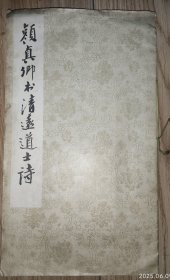 颜真卿书清远道士诗
2025.06.0